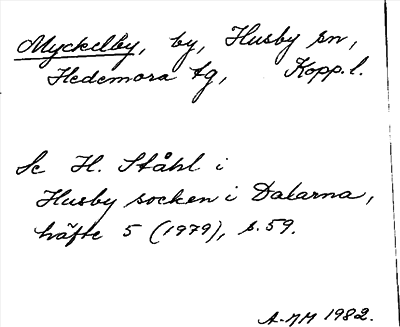 Myckelby, by, Husby sn,
Hedemora tg, Kopp.l.
Se H. Ståhl i
Husby socken i Dalarna,
häfte 5 (1979), s. 59.
A-MM 1982.